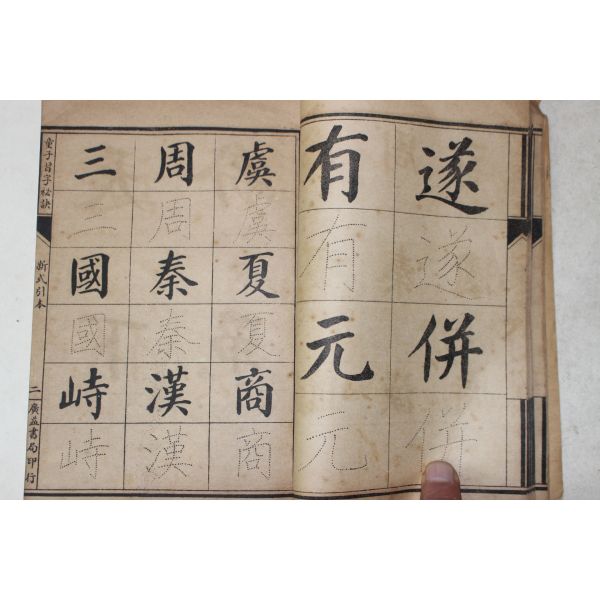 遂
遂
併
併
有
有
元
元
虞
虞
夏
夏
商
商
周
周
秦
秦
漢
漢
三
三
國
國
峙
峙
童子習字秘訣
新式引本
二
廣益書局印行